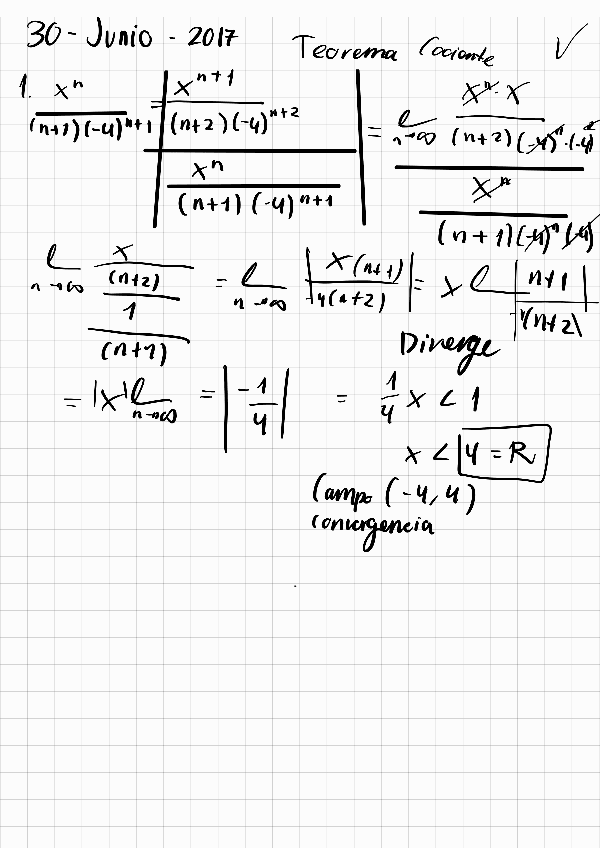 30 - Junio - 2017 Teorema Cociente ✓
1. x^n / (n+1)(-4)^{n+1} = | x^{n+1} / (n+2)(-4)^{n+2} / x^n / (n+1)(-4)^{n+1} | = l n→∞ x^n · x / (n+2)(-4)^n·(-4)^2 / x^n / (n+1)(-4)^n(-4)
l n→∞ x / (n+2) / 1 / (n+1) = l n→∞ | x(n+1) / 4(n+2) | = x l | n+1 / 4(n+2) |
Diverge
= |x| l n→∞ = | -1/4 | = 1/4 x < 1
x < 4 = R
Campo (-4, 4)
convergencia